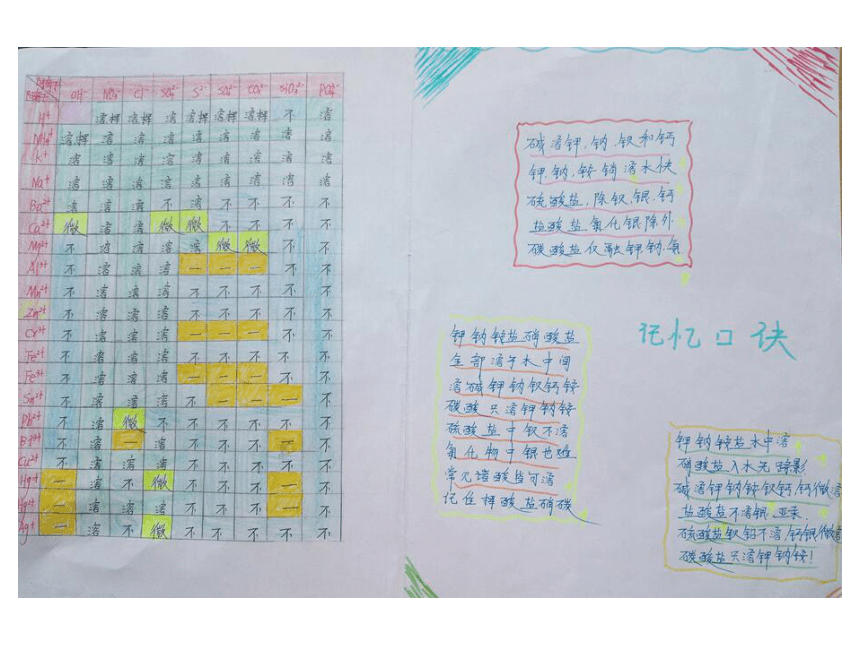 阴离子
阳离子 OH⁻ NO₃⁻ Cl⁻ SO₄²⁻ S²⁻ SO₃²⁻ CO₃²⁻ SiO₃²⁻ PO₄³⁻
H⁺ 溶挥 溶挥 溶 溶挥 溶挥 溶挥 不 溶
NH₄⁺ 溶挥 溶 溶 溶 溶 溶 溶 溶 溶
K⁺ 溶 溶 溶 溶 溶 溶 溶 溶 溶
Na⁺ 溶 溶 溶 溶 溶 溶 溶 溶 溶
Ba²⁺ 溶 溶 溶 不 溶 不 不 不 不
Ca²⁺ 微 溶 溶 微 微 不 不 不 不
Mg²⁺ 不 溶 溶 溶 溶 微 微 不 不
Al³⁺ 不 溶 溶 溶 一 一 一 不 不
Mn²⁺ 不 溶 溶 溶 不 不 不 不 不
Zn²⁺ 不 溶 溶 溶 不 不 不 不 不
Cr³⁺ 不 溶 溶 溶 一 一 一 不 不
Fe²⁺ 不 溶 溶 溶 不 不 不 不 不
Fe³⁺ 不 溶 溶 溶 一 一 一 不 不
Sn²⁺ 不 溶 溶 溶 不 一 一 一 不
Pb²⁺ 不 溶 微 不 不 不 不 不 不
Bi³⁺ 不 溶 一 溶 不 不 不 一 不
Cu²⁺ 不 溶 溶 溶 不 不 不 不 不
Hg⁺ 一 溶 不 微 不 不 不 一 不
Hg²⁺ 一 溶 溶 溶 不 不 不 一 不
Ag⁺ 一 溶 不 微 不 不 不 不 不
碱溶钾,钠,钡和钙
钾,钠,铵销溶水快
硫酸盐,除钡,银,钙
盐酸盐氯化银除外
碳酸盐仅融钾钠,氨
记忆口诀
钾钠铵盐硝酸盐
全部溶于水中间
溶碱钾钠钡钙铵
碳酸只溶钾钠铵
硫酸盐中钡不溶
氯化物中银也难
常见诸酸皆可溶
记住挥酸盐硝碳
钾钠铵盐水中溶
硝酸盐入水无踪影
碱溶钾钠铵钡钙,钙微溶
盐酸盐不溶银、亚汞
硫酸盐钡铅不溶,钙银微溶
碳酸盐只溶钾钠铵!